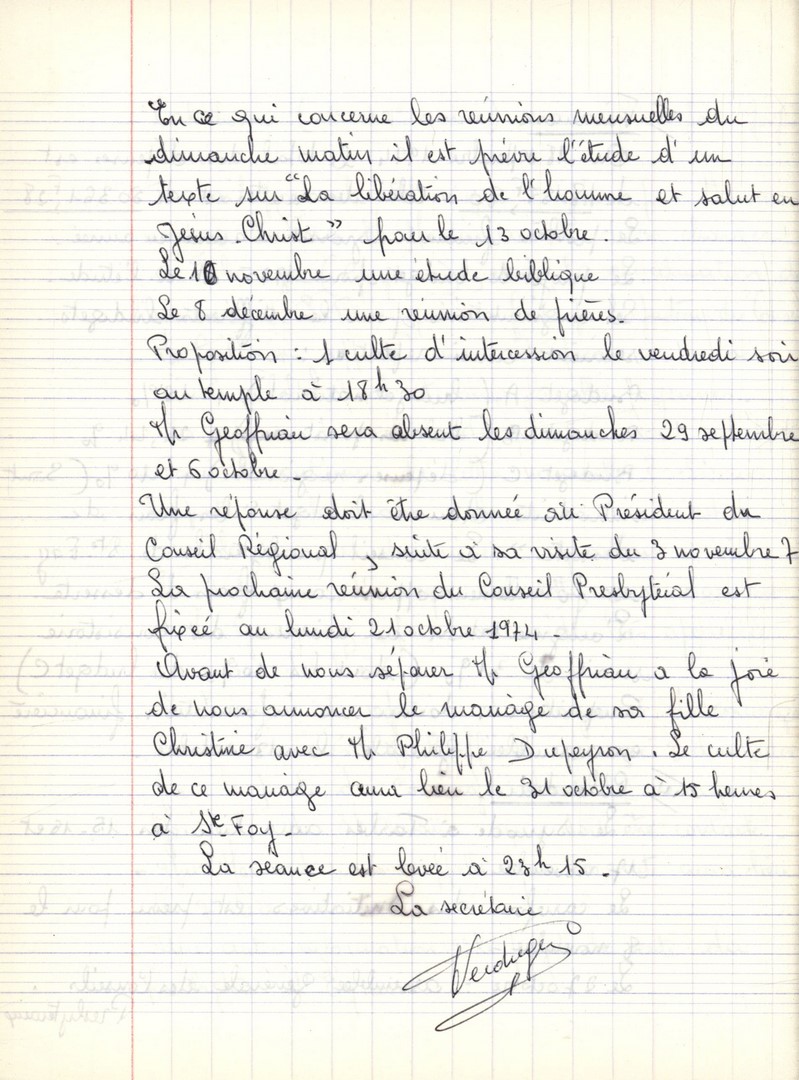 En ce qui concerne les réunions mensuelles du
dimanche matin il est prévu l'étude d'un
texte sur "La libération de l'homme et salut en
Jésus-Christ" pour le 13 octobre.
Le 10 novembre une étude biblique
Le 8 décembre une réunion de prières.
Proposition : 1 culte d'intercession le vendredi soir
au temple à 18h30
Mr Geoffriau sera absent les dimanches 29 septembre
et 6 octobre.
Une réponse doit être donnée au Président du
Conseil Régional, suite à sa visite du 3 novembre 7
La prochaine réunion du Conseil Presbytéral est
fixée au lundi 21 octobre 1974.
Avant de nous séparer Mr Geoffriau a la joie
de nous annoncer le mariage de sa fille
Christine avec Mr Philippe Dupeyron. Le culte
de ce mariage aura lieu le 31 octobre à 15 heures
à Ste Foy.
La séance est levée à 23h15.
La secrétaire